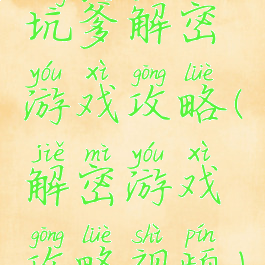 坑爹解密
yóu xì gōng lüè
游戏攻略(
jiě mì yóu xì
解密游戏
gōng lüè shì pín
攻略视频)